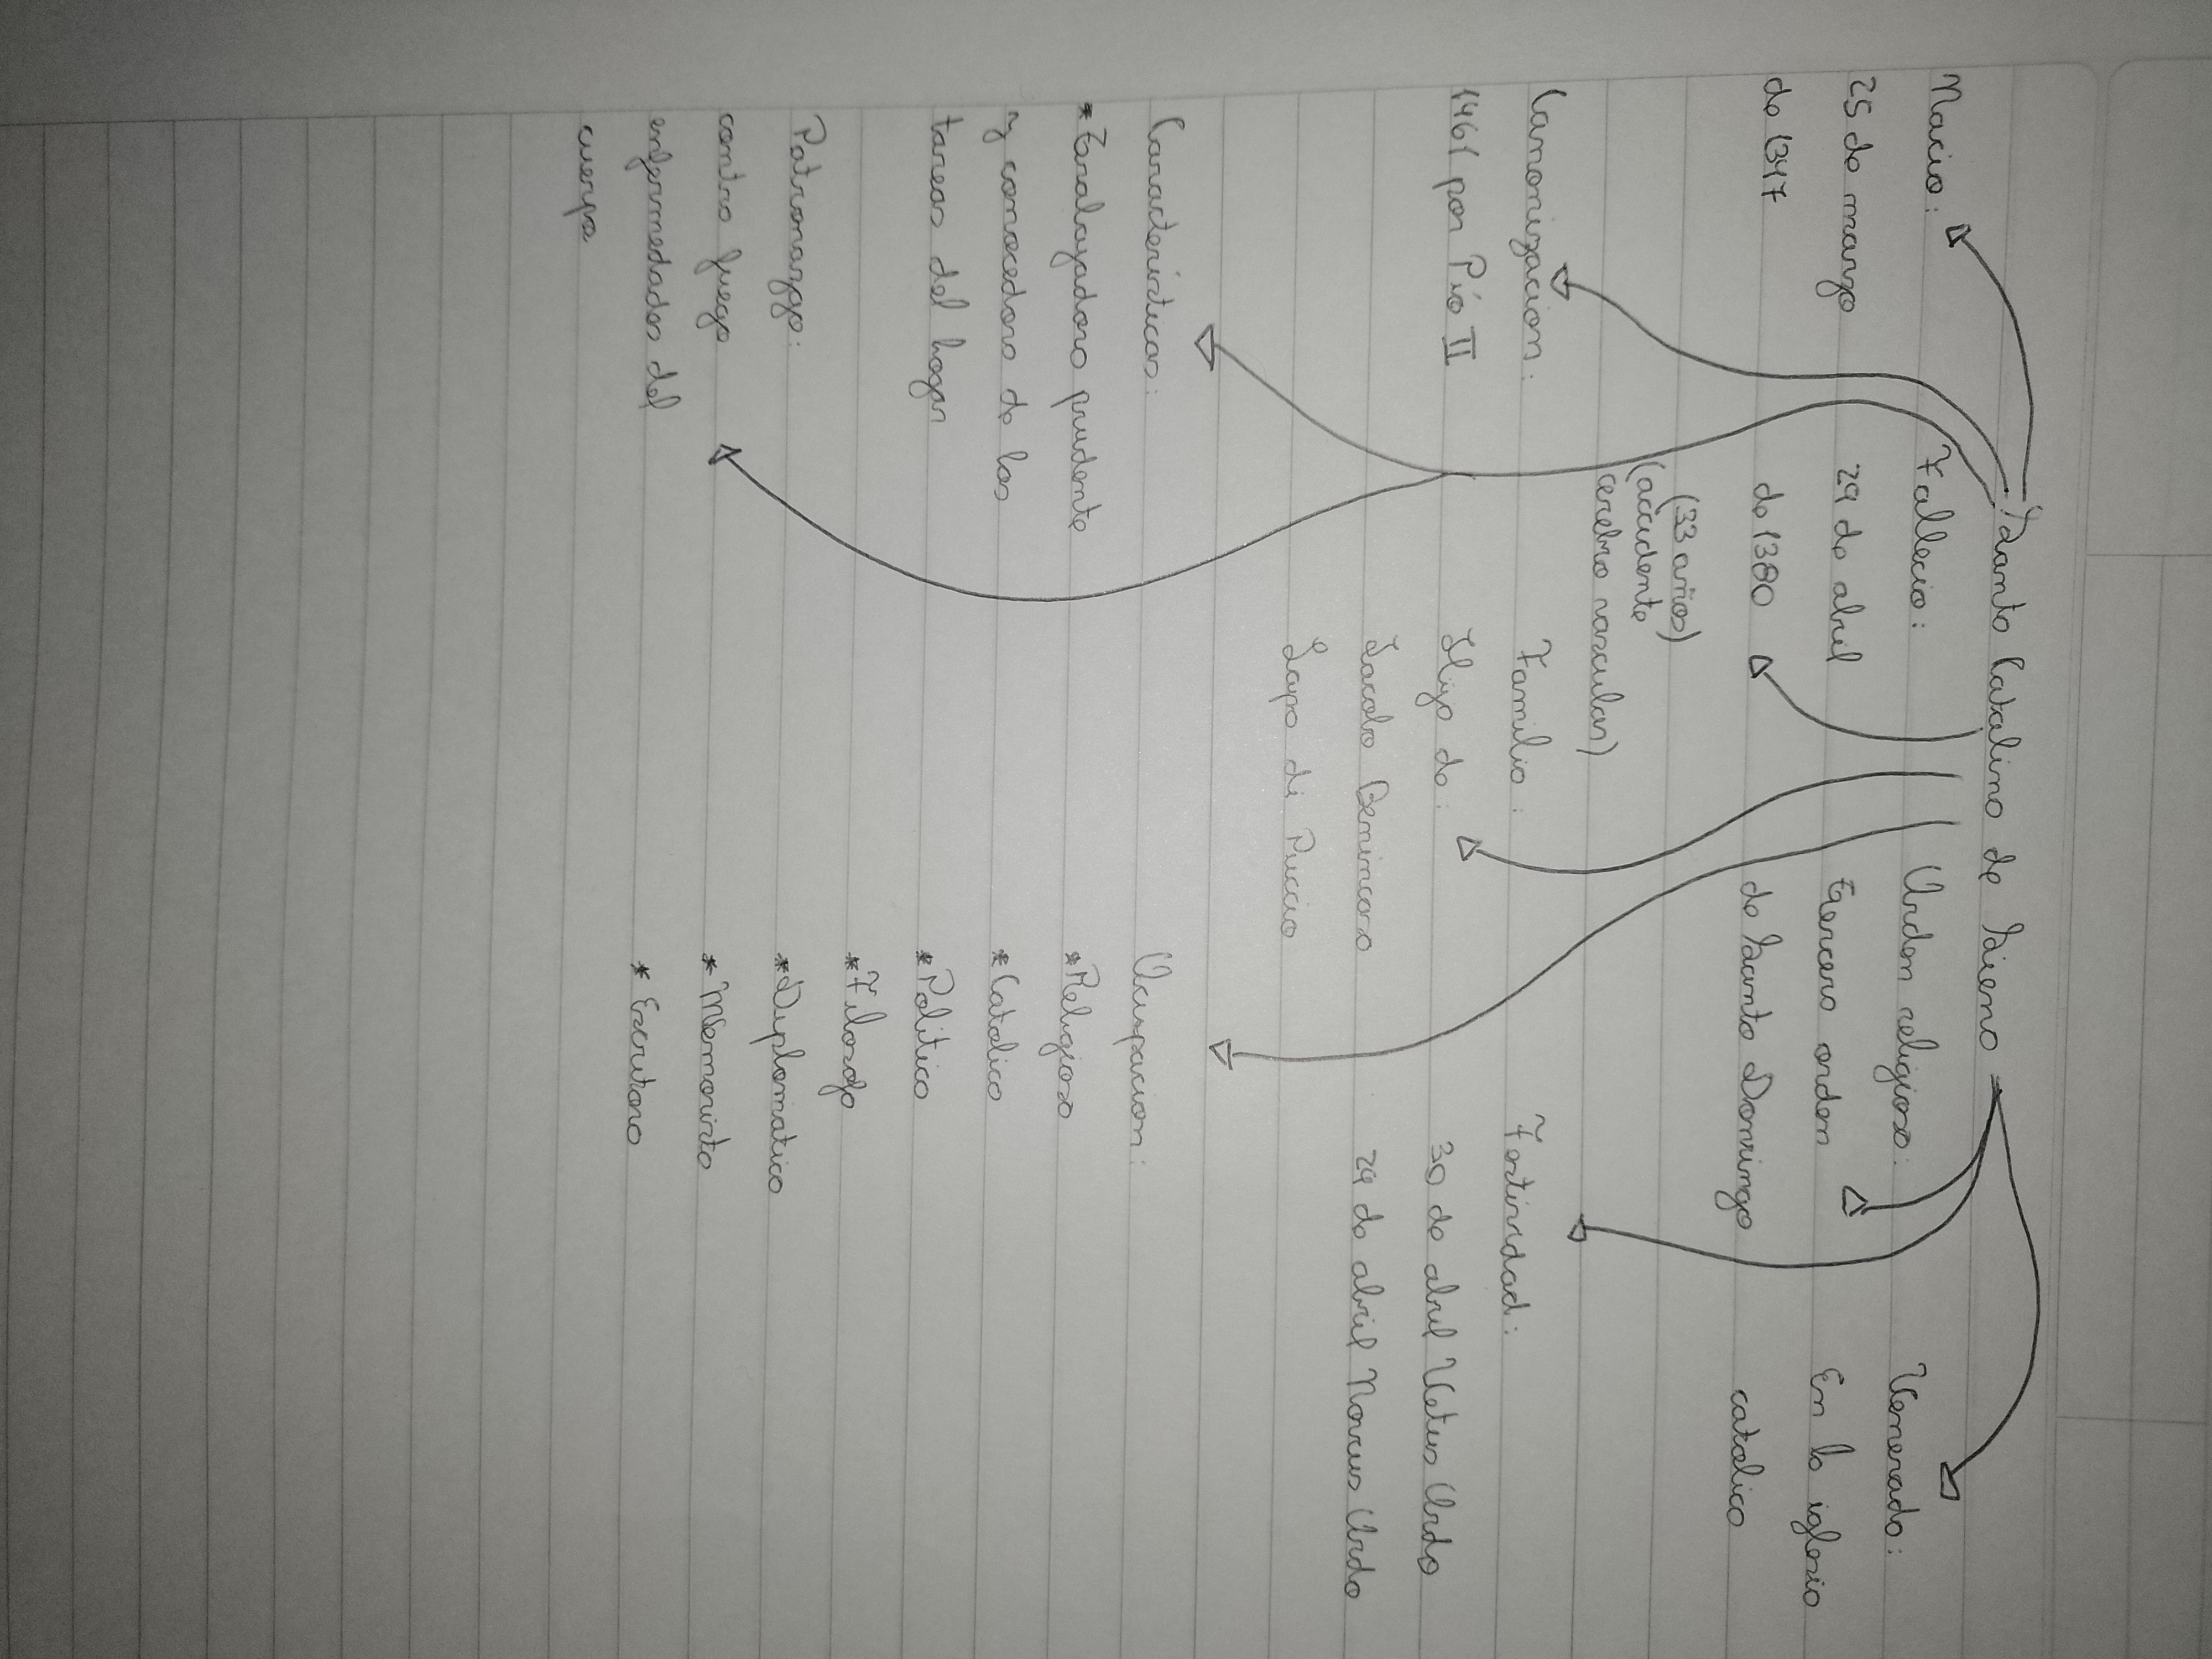 Santa Catalina de Siena
Nacio:
25 de marzo
de 1347
Fallecio:
29 de abril
de 1380
(33 años)
(accidente
cerebro vascular)
Orden religiosa:
Tercera orden
de Santo Domingo
Venerada:
En la iglesia
catolica
Canonizacion:
1461 por Pío II
Familia:
Hija de:
Jacobo Benincasa
Lapa di Puccio
Festividad:
30 de abril Vetus Ordo
29 de abril Novus Ordo
Características:
*Trabajadora prudente
y conocedora de las
tareas del hogar
Patronazgo:
contra fuego
enfermedades del
cuerpo
Ocupacion:
*Religiosa
*Catolica
*Politica
*Filosofa
*Diplomatica
*Memorista
*Escritora